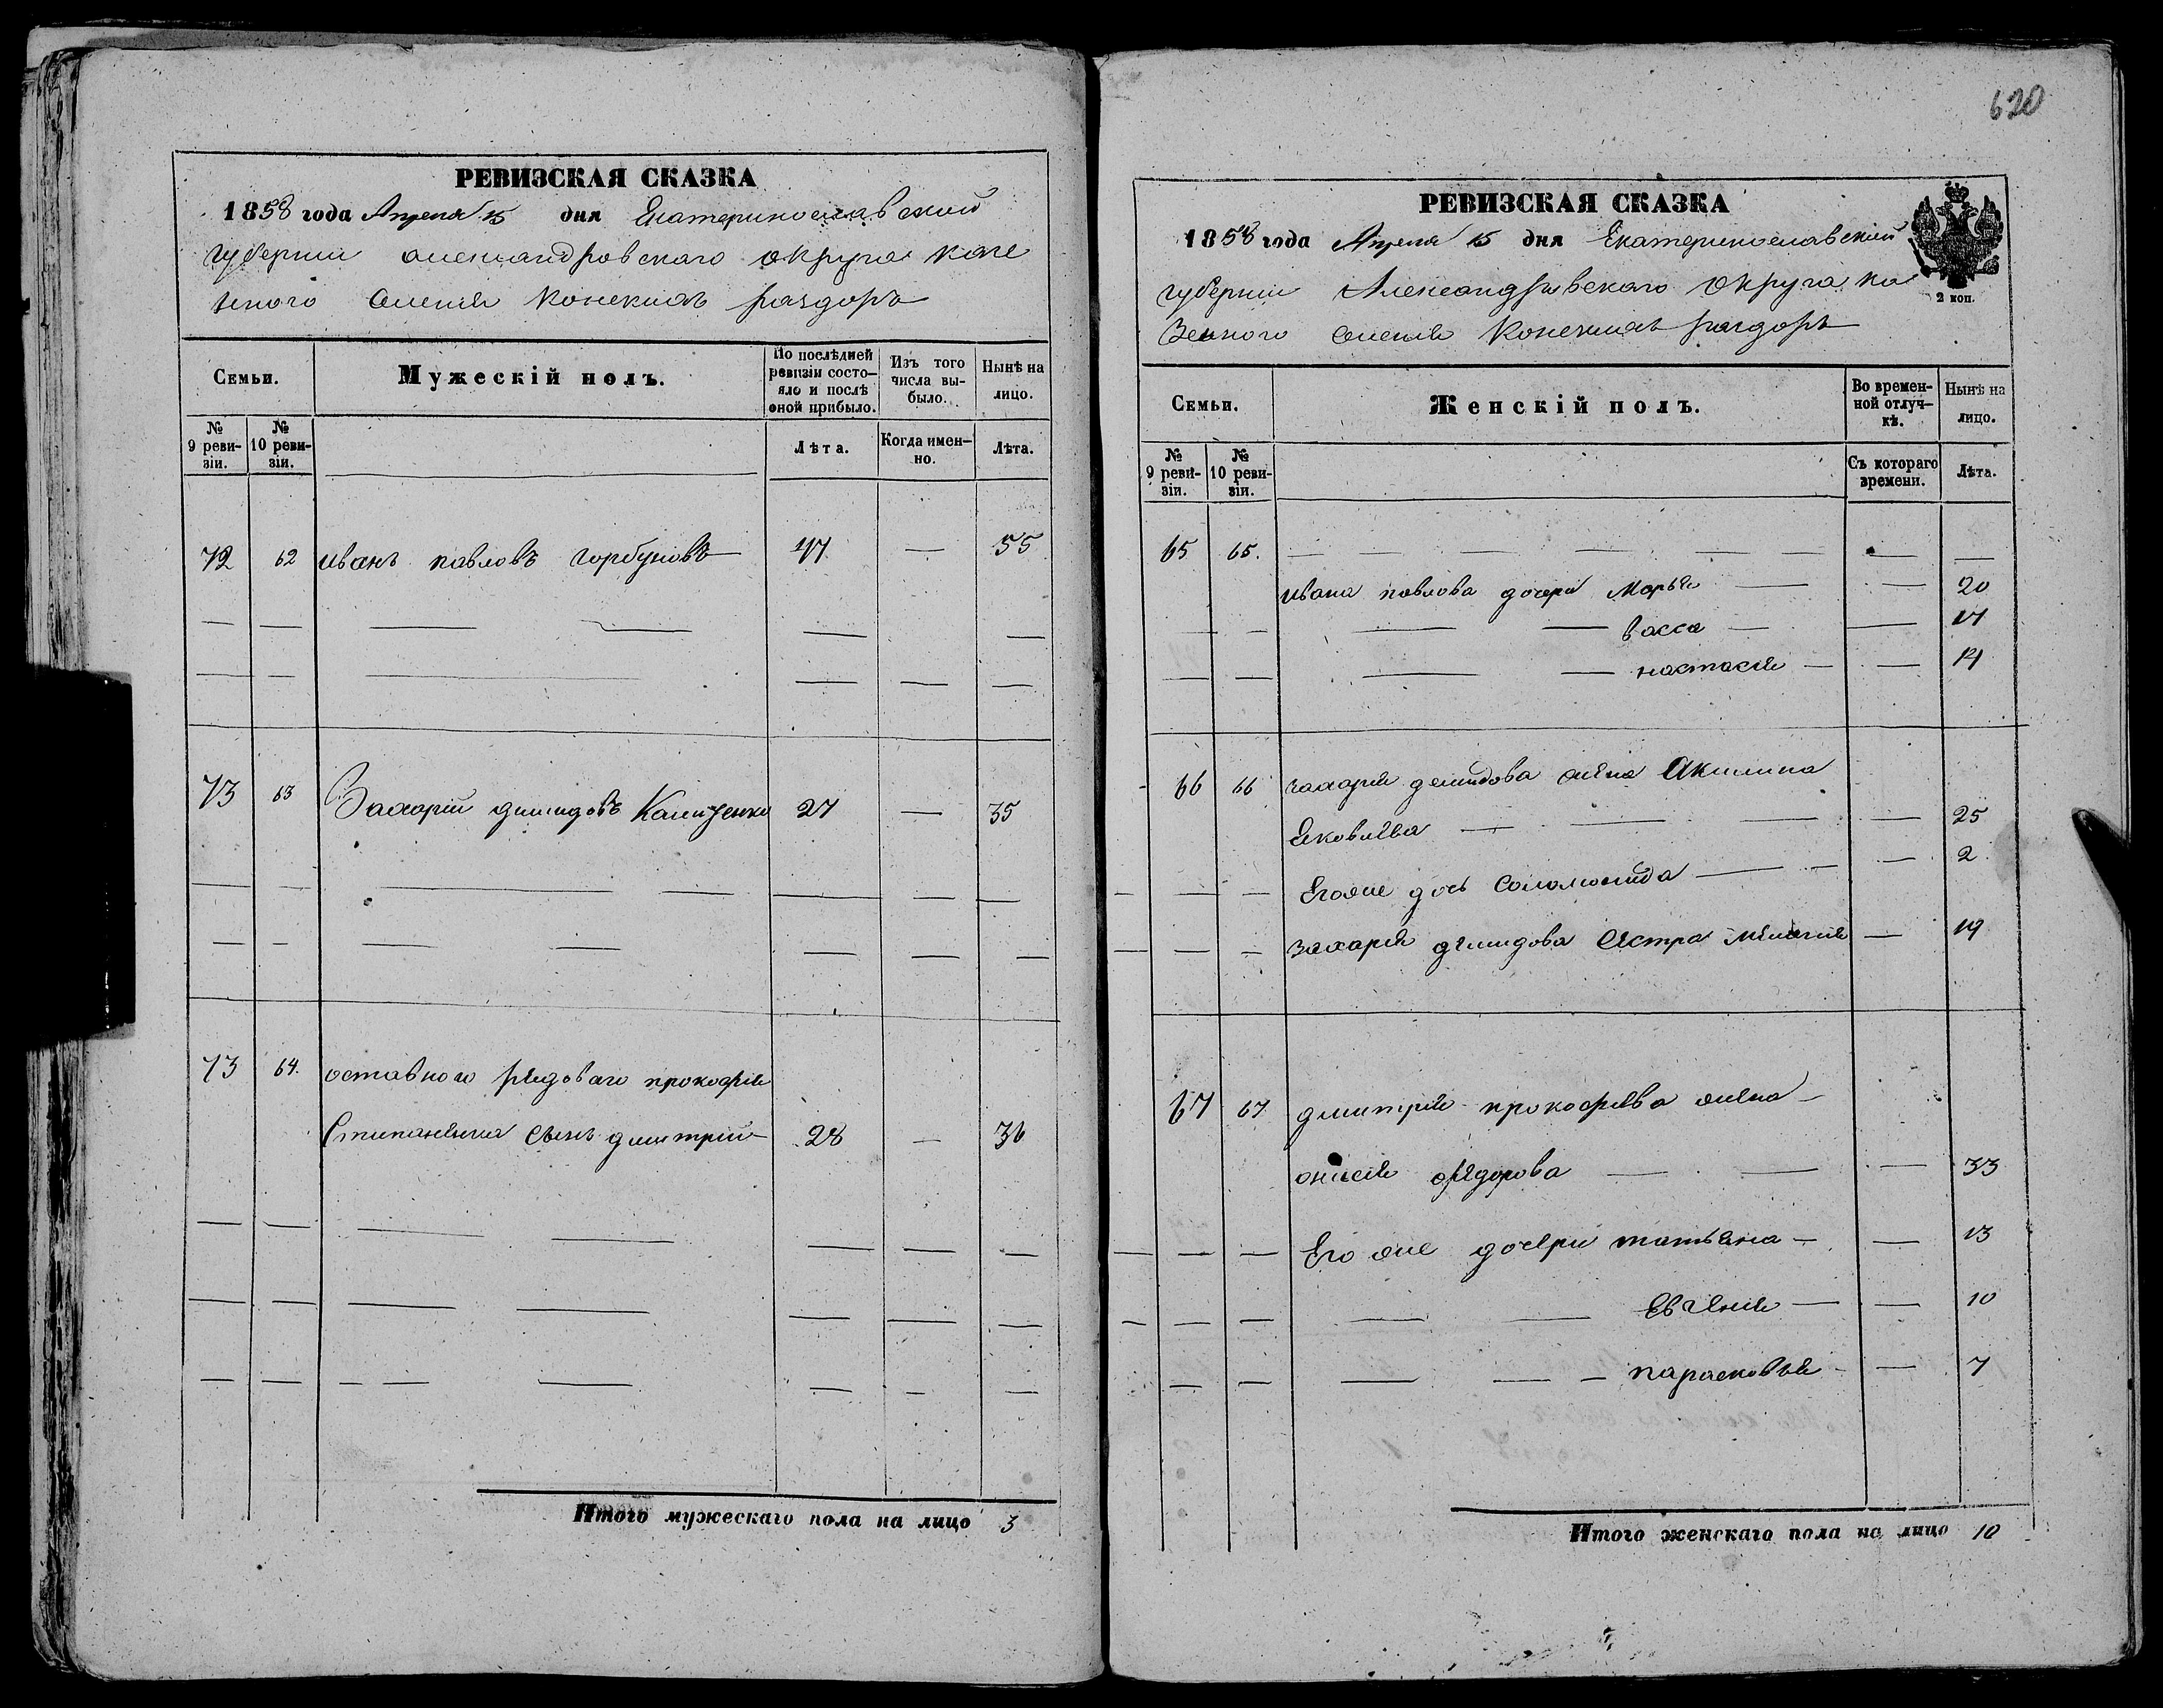 РЕВИЗСКАЯ СКАЗКА
1858 года Апреля 15 дня Екатеринославской
губернии александровского округа казе
много селения конскихъ раздоръ
Семьи.
Мужескій полъ.
По послѣдней ревизіи состояло и послѣ оной прибыло.
Изъ того числа выбыло.
Нынѣ на лицо.
№ 9 ревизіи.
№ 10 ревизіи.
Лѣта.
Когда именно.
Лѣта.
72 62 иванъ павловъ горбуновъ 47 — 55
73 63 Захарій димидовъ 27 — 35
73 64. оставного рядоваго прокофія
Стипановича сынъ дмитрий 28 — 36
Итого мужескаго пола на лицо 3
620
РЕВИЗСКАЯ СКАЗКА
1858 года Апреля 15 дня Екатеринославской
губернии Александровскаго округа ка
зенного селения Конскихъ раздоръ
2 коп.
Семьи.
Женскій полъ.
Во временной отлучкѣ.
Нынѣ на лицо.
№ 9 ревизіи.
№ 10 ревизіи.
Съ котораго времени.
Лѣта.
65 65. — — — — — — —
ивана павлова дочери Марья — — 20
— — — — васса — — 17
— — — — настасия — — 14
66 66 захария демидова жена Акилина
Яковлева — — — — 25
— — — Егоже дочь Соломонида — — — 2
— — — захария демидова сестра — 19
67 67 дмитрия прокофьева жена —
онисия федорова — — — 33
— — — Его же дочери татьяна — — 13
— — — — — Евгения — — 10
— — — — — парасковья — — 7
Итого женскаго пола на лицо 10